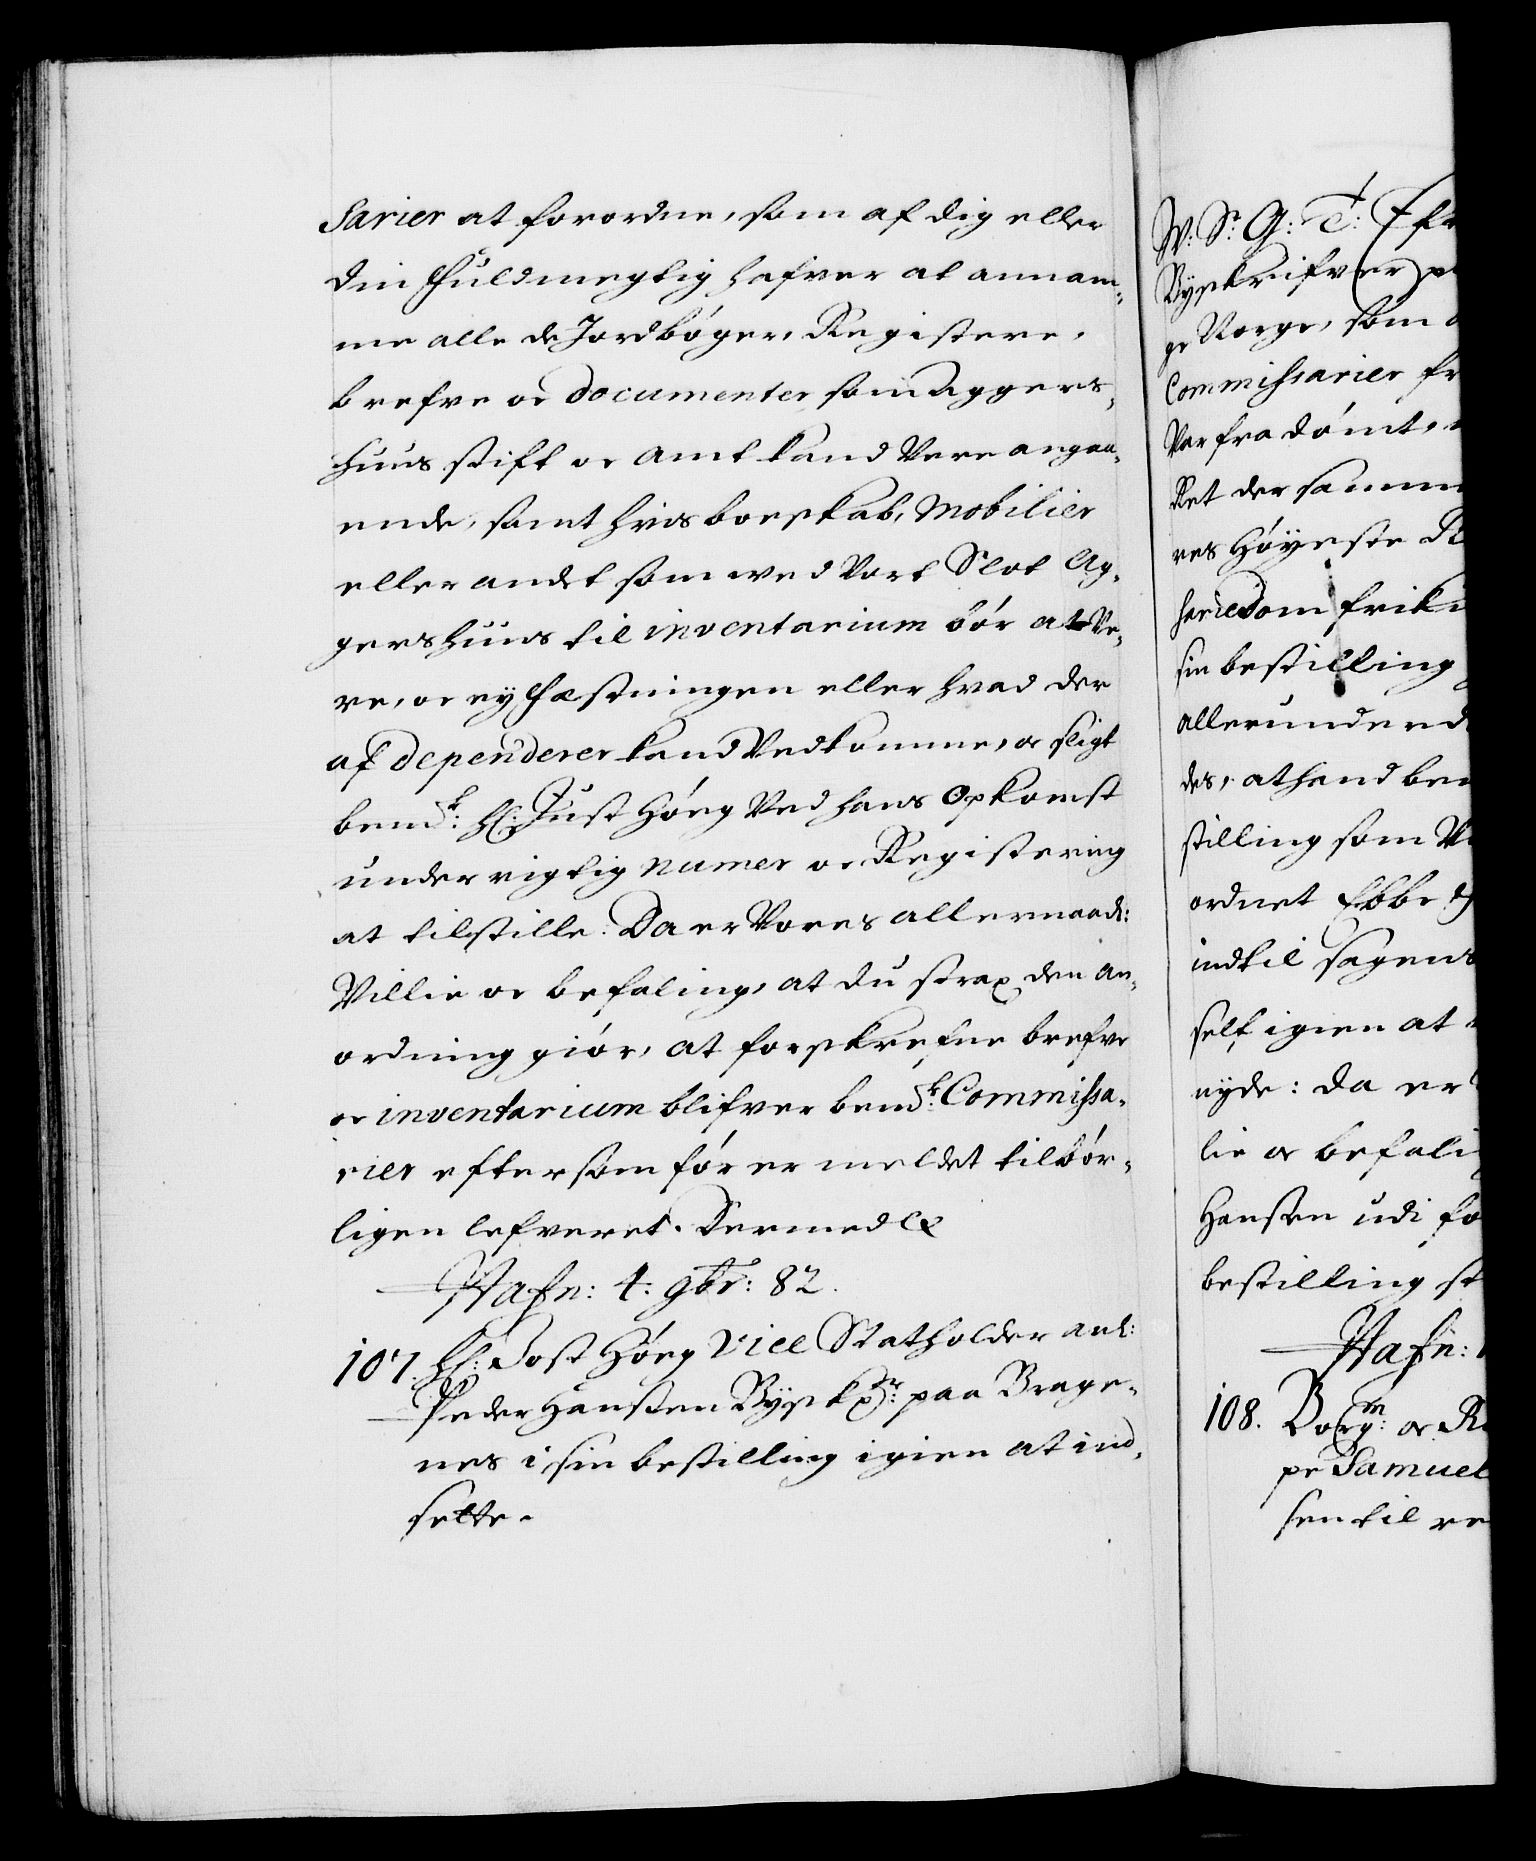 sarier at forordne, som af dig eller
din fuldmegtig hafver at annam-
me alle de Jordbøger, Registere,
brefve oc documenter som Aggers-
huus stift oc Amt kand Vere angaa-
ende, samt hvis boeskab, Mobilier
eller andet som ved Vort Slot Ag-
gershuus til inventarium bør at Ve-
re, oc ey Fæstningen eller hvad der
af dependerer kand Vedkomme, oc sligt
bemt: Hr: Just Høeg Ved hans Opkomst
under rigtig numer oc Registering
at tilstille. Da er Vores allernaad:
Villie oc befaling, at du strax den An-
ordning giør, at forskrefne brefve
oc inventarium blifver bemt: Commissa-
rier eftersom før er meldet tilbør-
ligen lefveret. Dermed etc
Hafn: 4. 9br: 82.
107. Hr: Jost Høeg Vice Statholder anl:
Peder Hansten Byskr: paa Brage-
nes i sin bestilling igien at ind-
sette.
W: Sr: G: T: Eft
Byskrifver p
ge Norge, som
Commissarier fr
Var fra dømt,
Ret der samm
res Høyeste R
sariedom frik
sin bestilling
allerunderd
des, at hand be
stilling som V
ordnet Ebbe
indtil sagens
self igien at
nyde: da er
lie oc befali
Hansten udi fo
bestilling st
Hafn:
108. Borgm: oc R
pe Samuel
sen til re